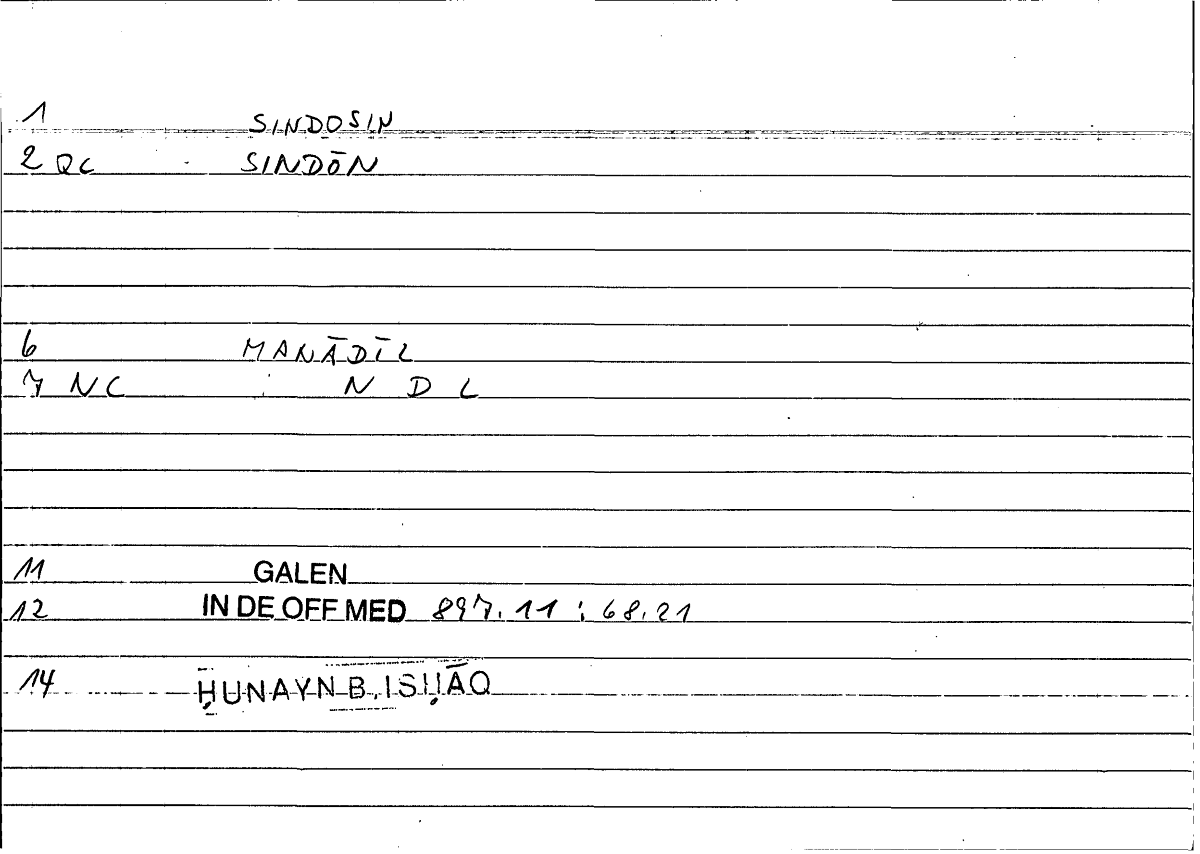 1 SINDOSIN
2 QC SINDŌN
6 MANĀDĪL
7 NC N D L
11 GALEN
12 IN DE OFF MED 897.11 : 68.21
14 ḤUNAYN B. ISḤĀQ